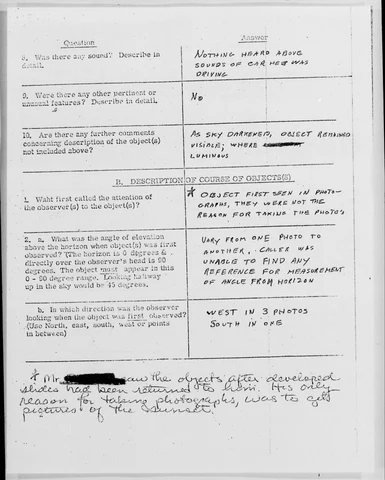 Question Answer
8. Was there any sound? Describe in
detail.
NOTHING HEARD ABOVE
SOUNDS OF CAR HE WAS
DRIVING
9. Were there any other pertinent or
unusual features? Describe in detail.
NO
10. Are there any further comments
concerning description of the object(s)
not included above?
AS SKY DARKENED, OBJECT REMAINED
VISIBLE; WHERE
LUMINOUS
B. DESCRIPTION OF COURSE OF OBJECTS(S)
1. Waht first called the attention of
the observer(s) to the object(s)?
* OBJECT FIRST SEEN IN PHOTO-
GRAPHS, THEY WERE NOT THE
REASON FOR TAKING THE PHOTOS
2. a. What was the angle of elevation
above the horizon when object(s) was first
observed? (The horizon is 0 degrees &
directly over the observer's head is 90
degrees. The object must appear in this
0 - 90 degree range. Looking halfway
up in the sky would be 45 degrees.
VARY FROM ONE PHOTO TO
ANOTHER, CALLER WAS
UNABLE TO FIND ANY
REFERENCE FOR MEASUREMENT
OF ANGLE FROM HORIZON
b. In which direction was the observer
looking when the object was first observed?
(Use North, east, south, west or points
in between)
WEST IN 3 PHOTOS
SOUTH IN ONE
* Mr. saw the objects after developed
slides had been returned to him. His only
reason for taking photographs, was to get
pictures of the sunset.